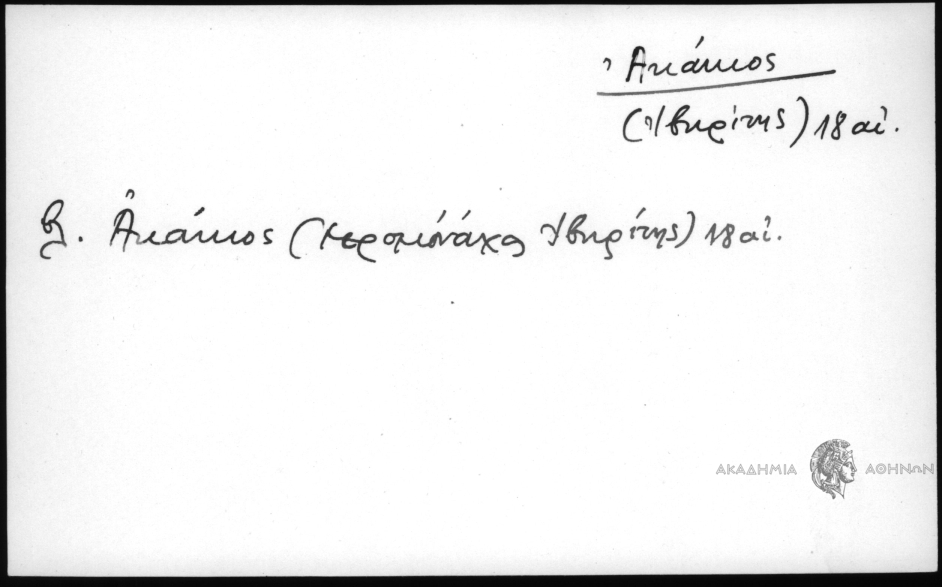 Ἀκάκιος
(Ἰβηρίτης) 18 αἰ.
βλ. Ἀκάκιος (Ἱερομόναχος Ἰβηρίτης) 18 αἰ.
ΑΚΑΔΗΜΙΑ ΑΘΗΝΩΝ